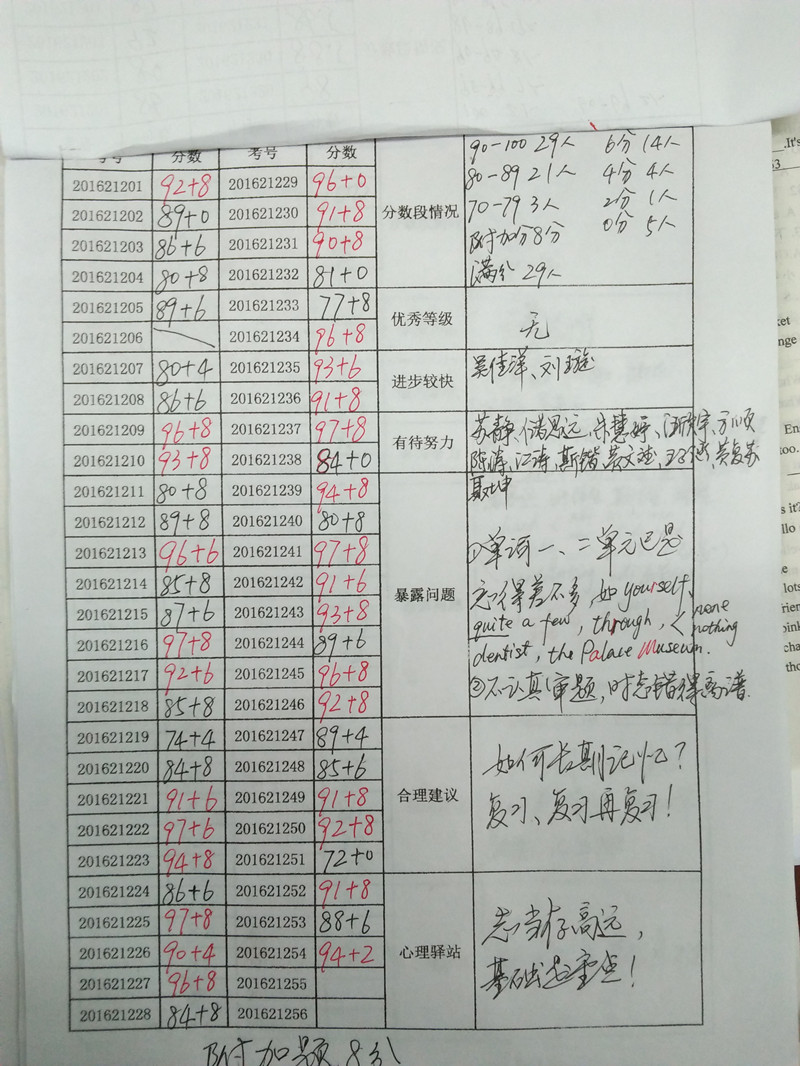 考号 分数 考号 分数
201621201 92+8 201621229 96+0
201621202 89+0 201621230 91+8
201621203 86+6 201621231 90+8
201621204 80+8 201621232 81+0
201621205 89+6 201621233 77+8
201621206 201621234 96+8
201621207 80+4 201621235 93+6
201621208 86+6 201621236 91+8
201621209 96+8 201621237 97+8
201621210 93+8 201621238 84+0
201621211 80+8 201621239 94+8
201621212 89+8 201621240 80+8
201621213 96+6 201621241 97+8
201621214 85+8 201621242 91+6
201621215 87+6 201621243 93+8
201621216 97+8 201621244 89+6
201621217 92+6 201621245 96+8
201621218 85+8 201621246 92+8
201621219 74+4 201621247 89+4
201621220 84+8 201621248 85+6
201621221 91+6 201621249 91+8
201621222 97+6 201621250 92+8
201621223 94+8 201621251 72+0
201621224 86+6 201621252 91+8
201621225 97+8 201621253 88+6
201621226 90+4 201621254 94+2
201621227 96+8 201621255
201621228 84+8 201621256
分数段情况
90-100 29人 6分 14人
80-89 21人 4分 4人
70-79 3人 2分 1人
附加分8分 0分 5人
满分 29人
优秀等级
无
进步较快
吴佳洋、刘璇
有待努力
苏静、储思远、朱慧婷、方顺
陈涛、江涛、
暴露问题
①单词一、二单元已是
忘得差不多,如yourself,
quite a few, through, none
nothing
dentist, the Palace Museum.
②不认真审题,时态错得离谱.
合理建议
如何长期记忆?
复习、复习再复习!
心理驿站
志当存高远,
基础是重点!
附加题 8分